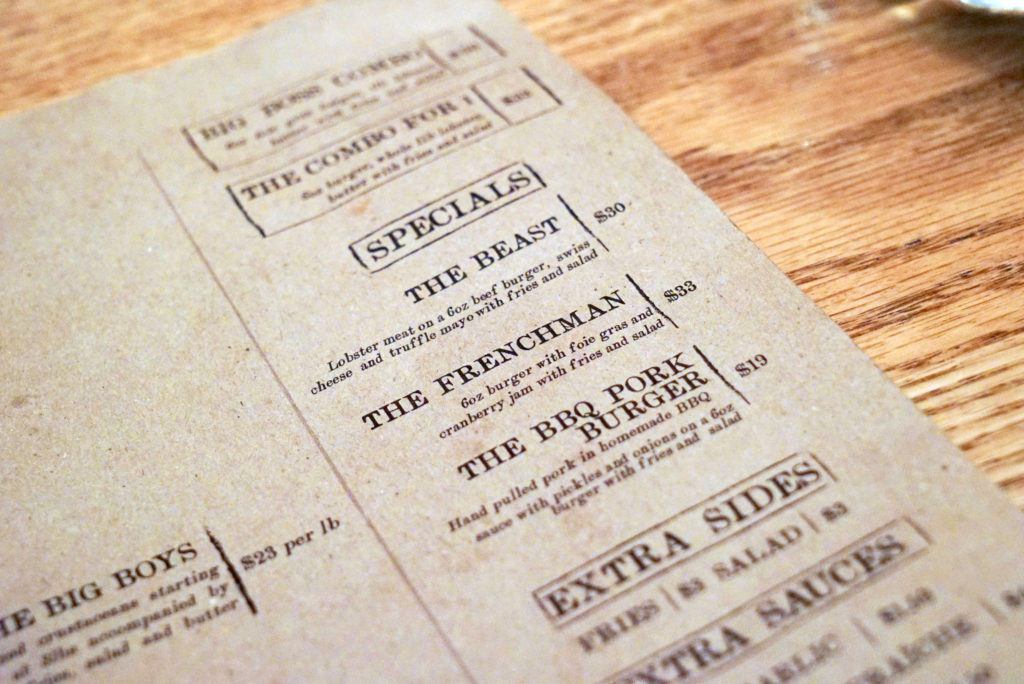 BIG BOSS COMBO
THE COMBO FOR 1
6oz burger, whole 1lb lobster
butter with fries and salad
SPECIALS
THE BEAST $30
Lobster meat on a 6oz beef burger, swiss
cheese and truffle mayo with fries and salad
THE FRENCHMAN $33
6oz burger with foie gras and
cranberry jam with fries and salad
THE BBQ PORK $19
BURGER
Hand pulled pork in homemade BBQ
sauce with pickles and onions on a 6oz
burger with fries and salad
EXTRA SIDES
FRIES $3 SALAD $3
EXTRA SAUCES
BIG BOYS $23 per lb
crustaceans starting
of 5lbs accompanied by
salad and butter